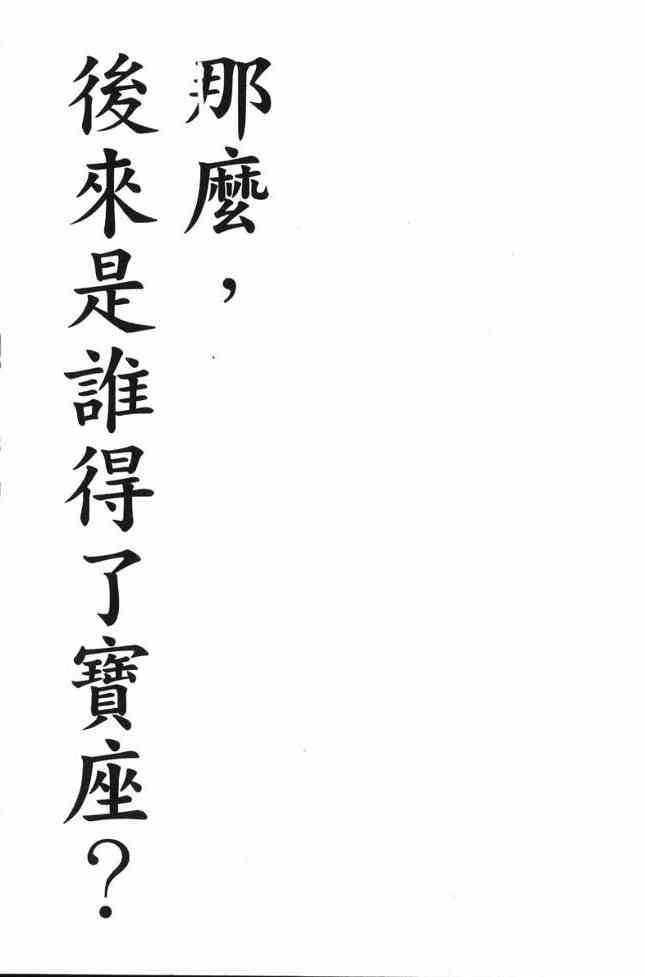 那麼，
後來是誰得了寶座？